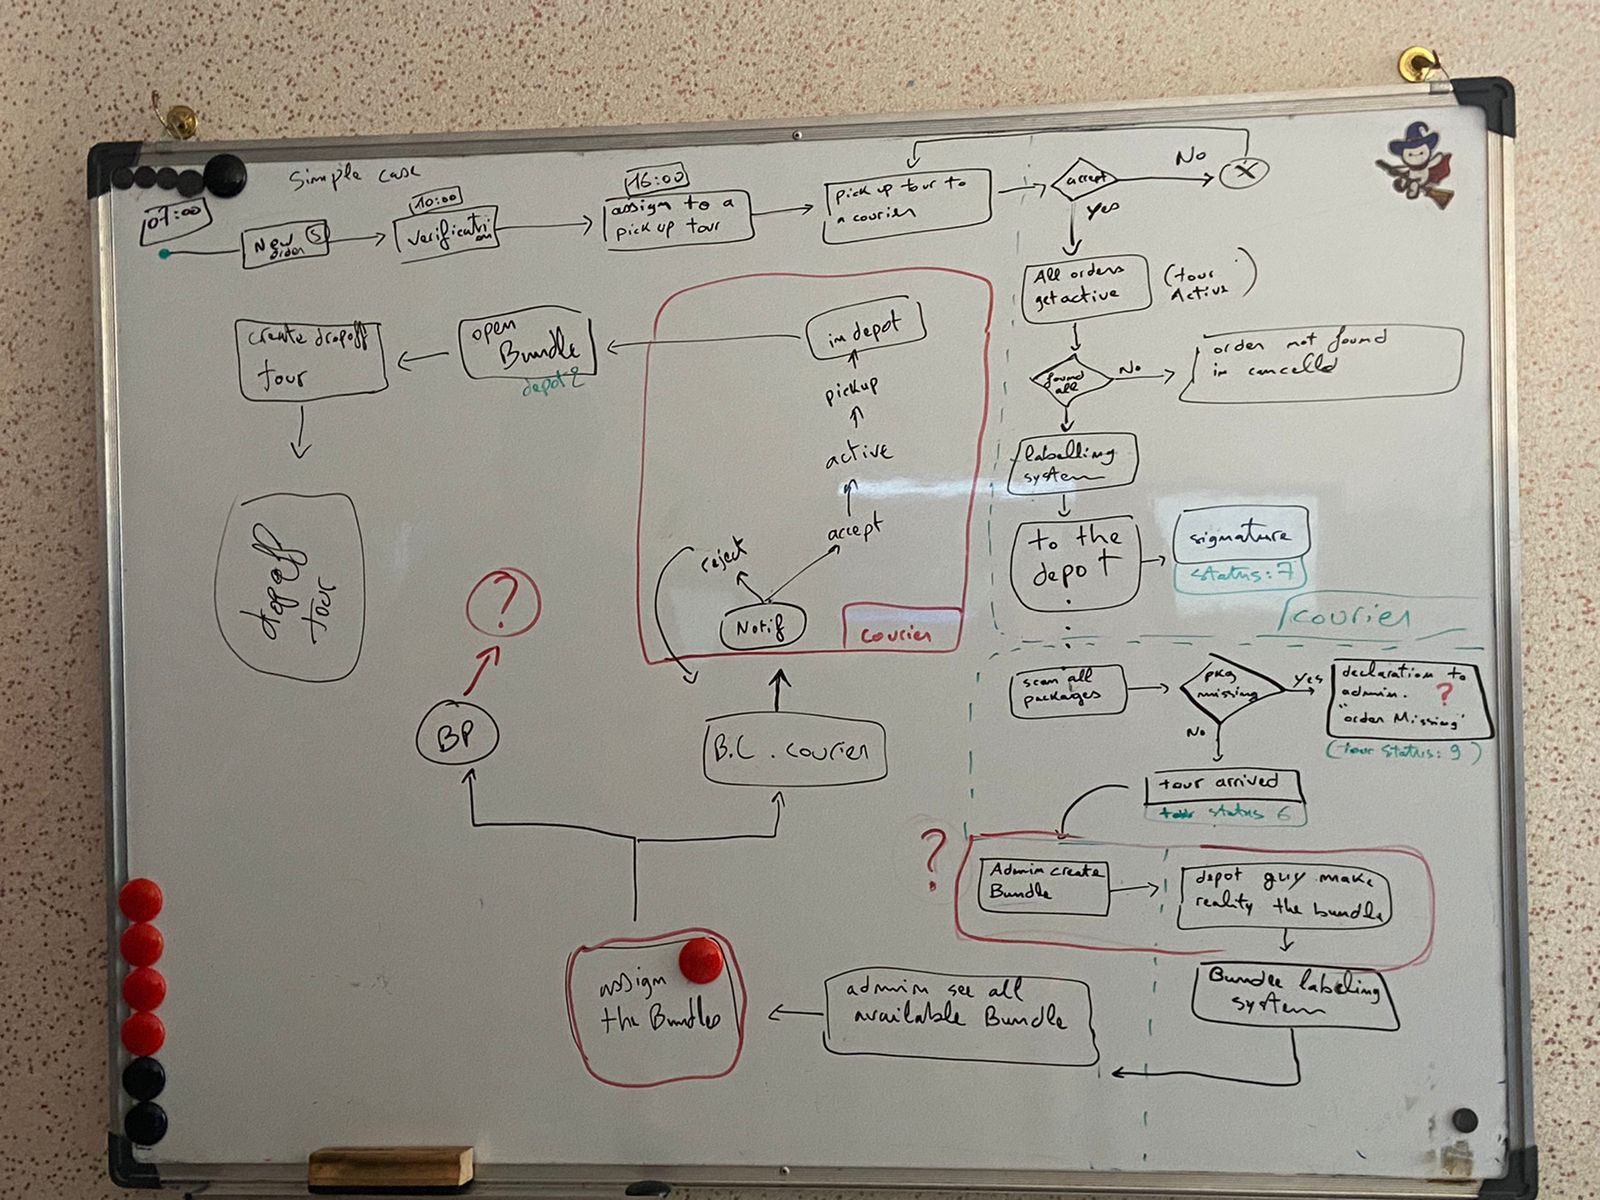 Simple case
07:00
New
order
5
10:00
verificati
on
16:00
assign to a
pick up tour
pick up tour to
a courier
accept
No
X
yes
All orders
get active
(tour
Active)
found
all
No
order not found
in cancelld
labelling
system
to the
depot
signature
status: 7
courier
scan all
packages
pkg
missing
yes
declaration to
admin. ?
"order Missing"
(tour status: 9)
No
tour arrived
status 6
?
Admin create
Bundle
depot guy make
reality the bundle
Bundle labeling
system
admin see all
available Bundle
assign
the Bundles
BP
?
B.C. courier
courier
Notif
reject
accept
active
pickup
in depot
open
Bundle
depot 2
create dropoff
tour
dropoff
tour